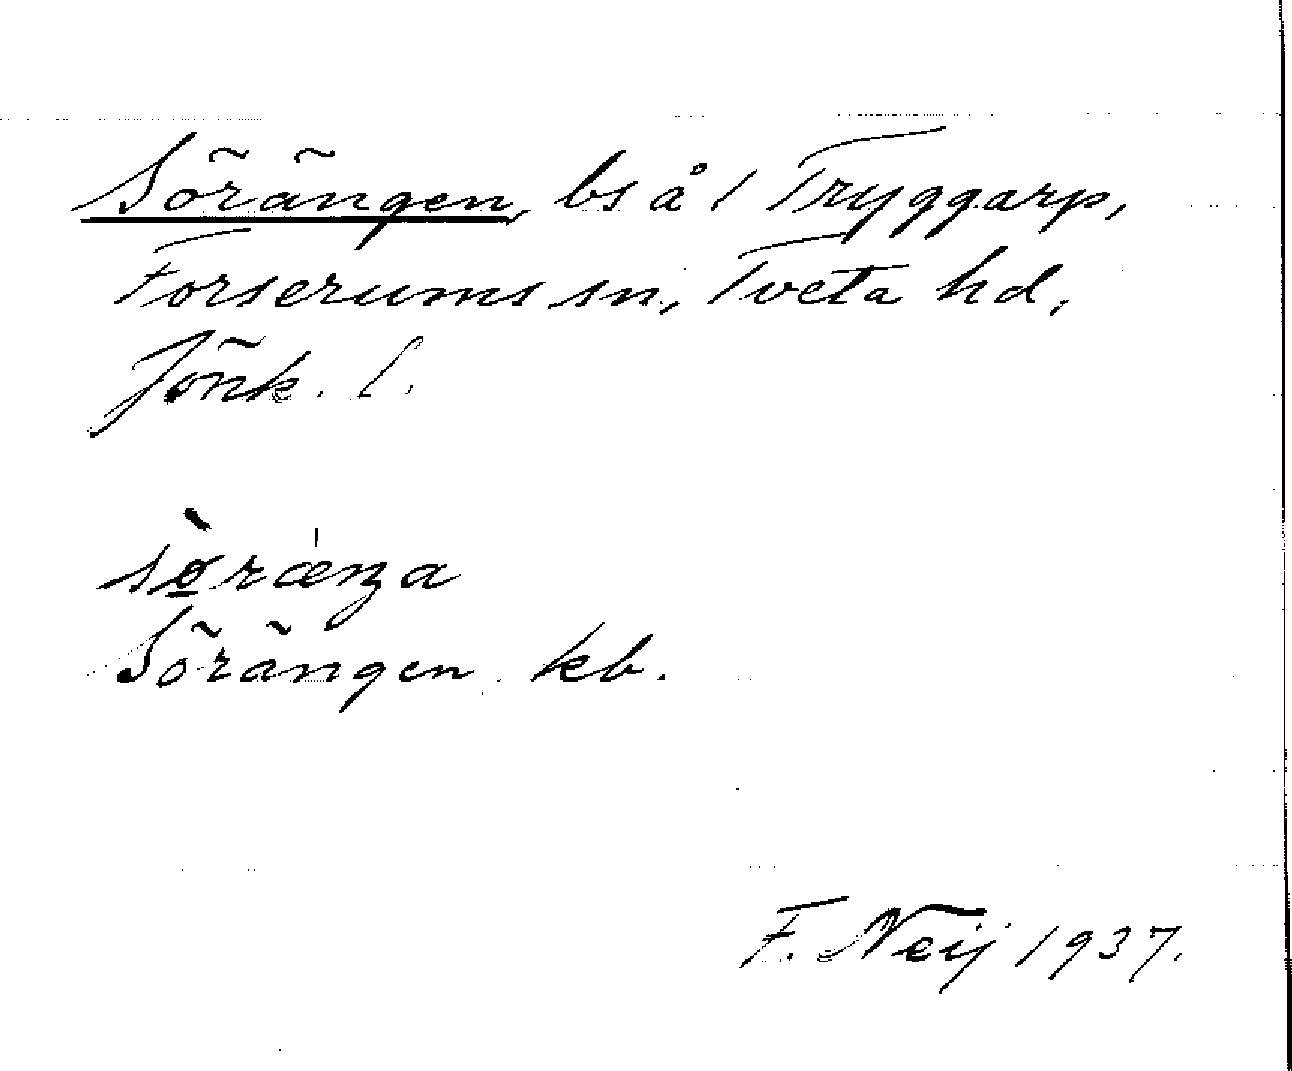 Sörängen, bs å 1 Tryggarp,
Forserums sn, Tveta hd,
Jönk. l.
sø̀ræ̍ŋa
Sörängen kb.
F. Neij 1937.